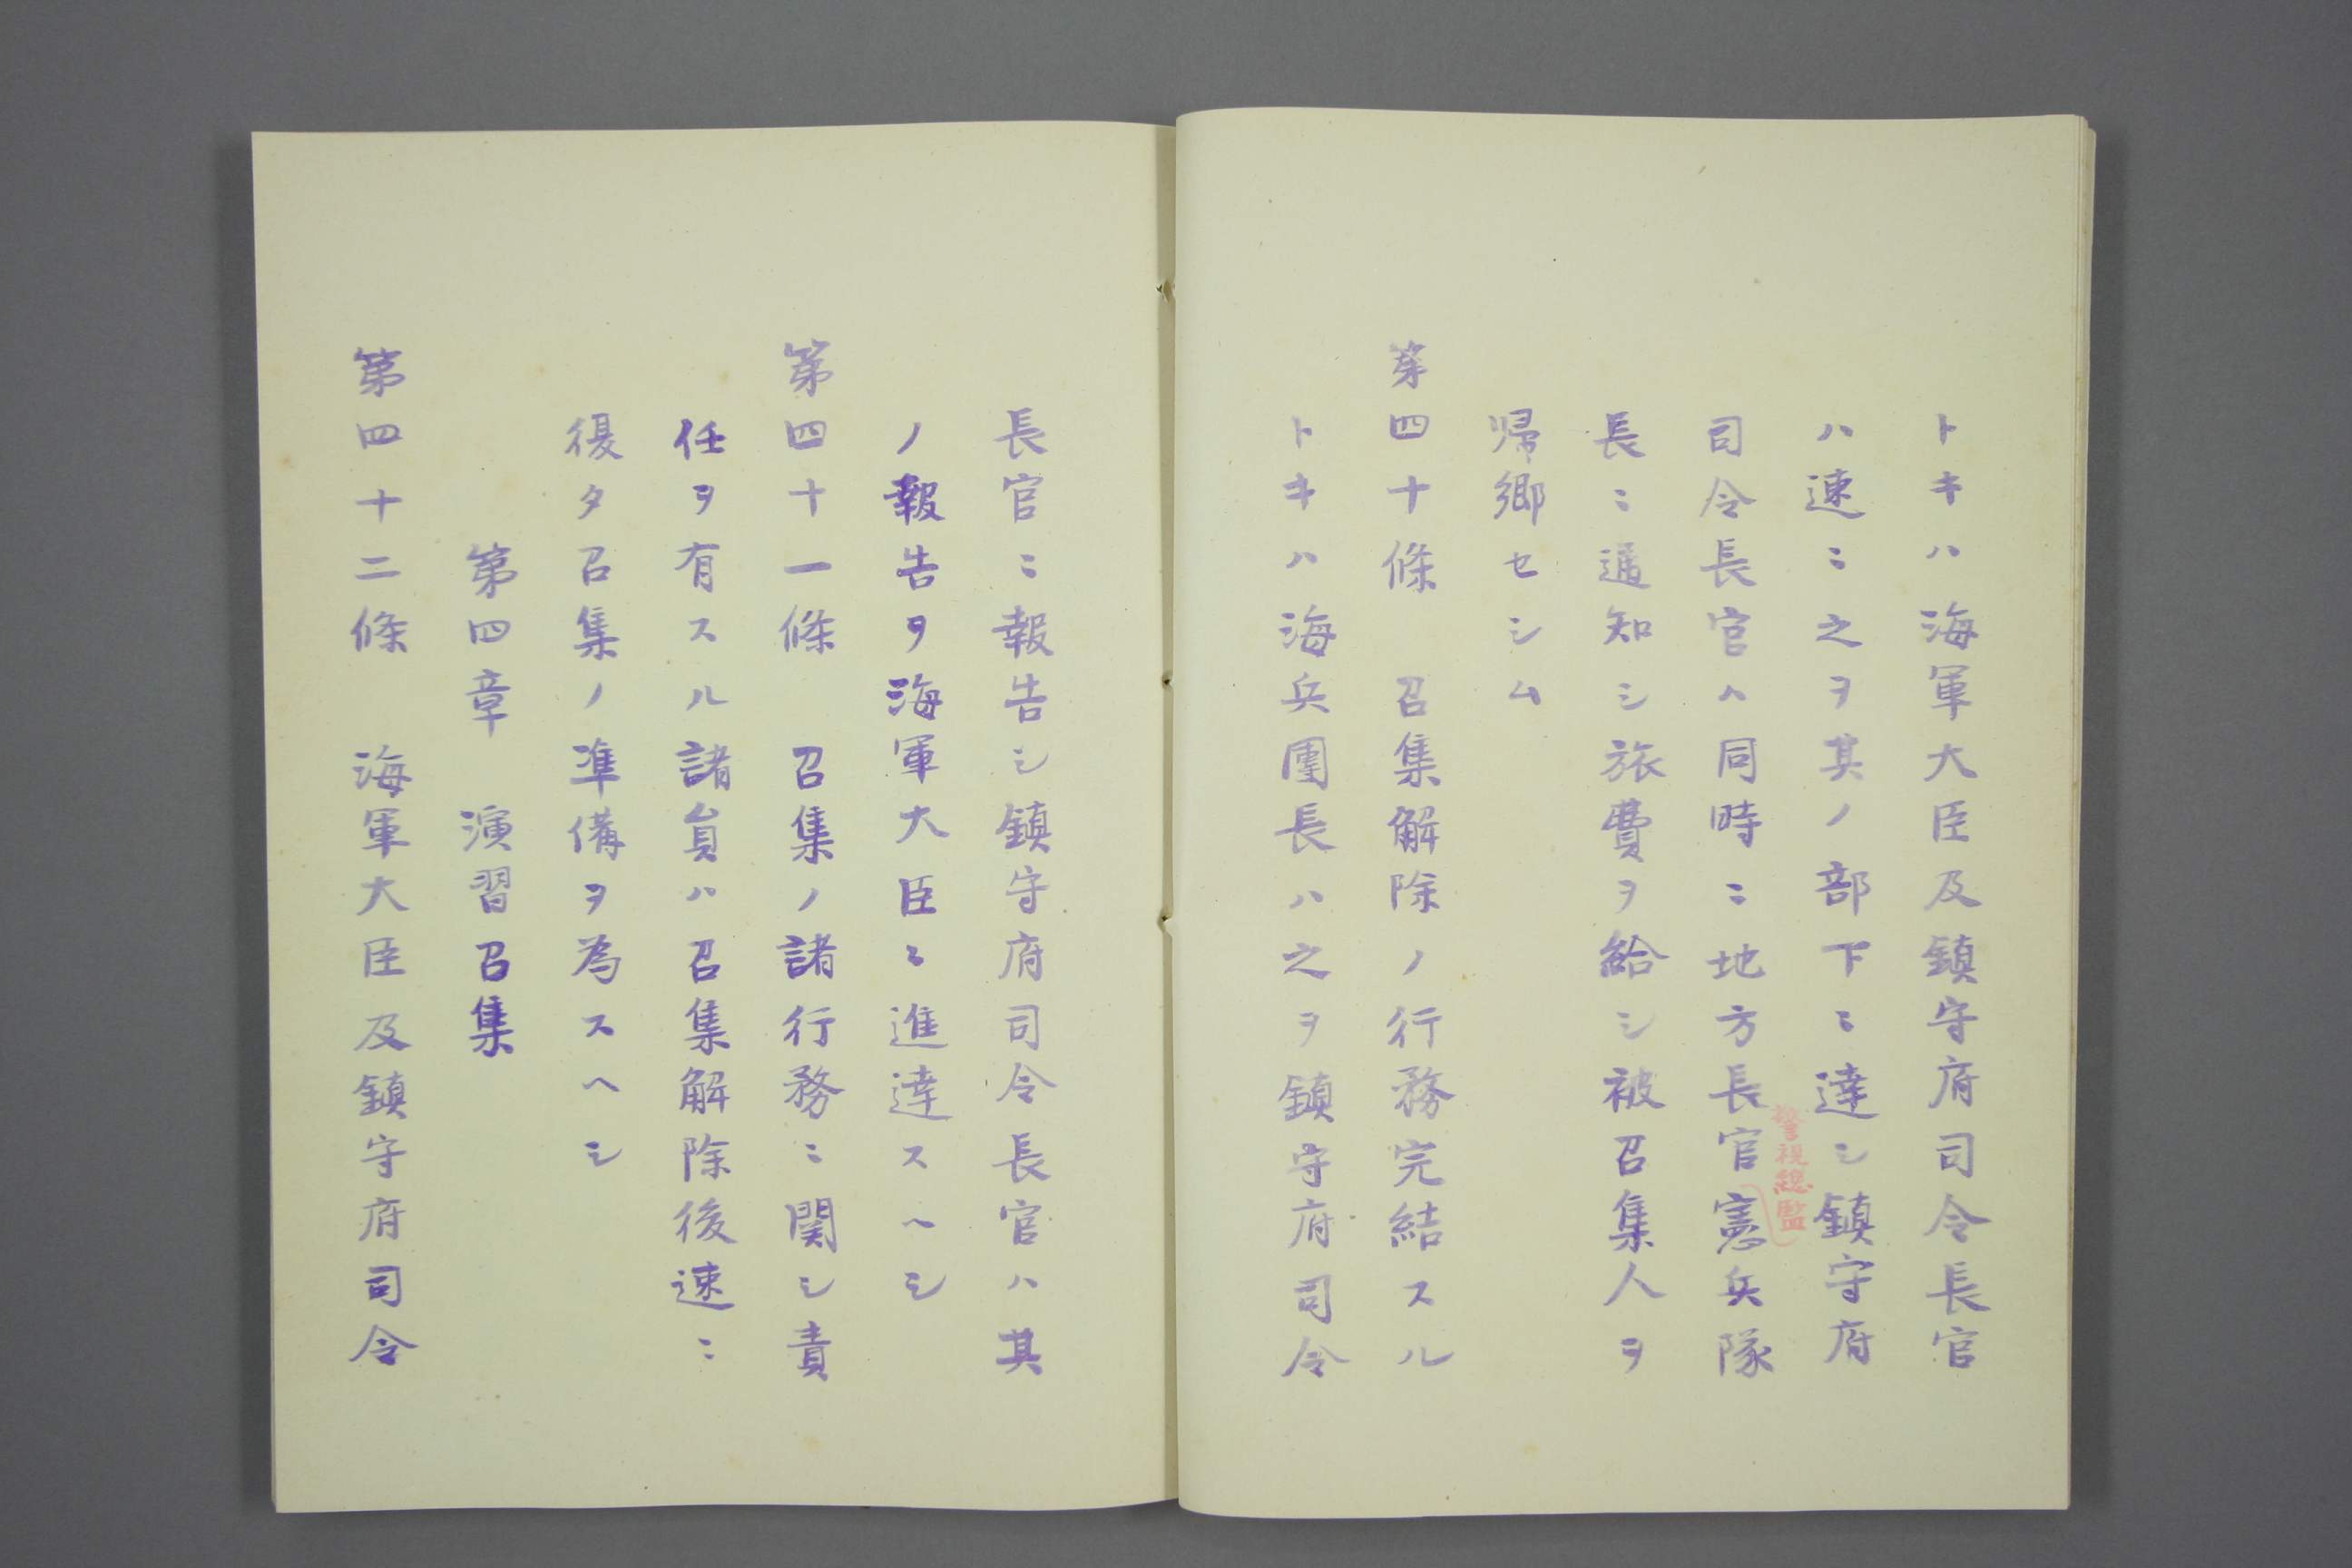 トキハ海軍大臣及鎮守府司令長官
ハ速ニ之ヲ其ノ部下ニ達シ鎮守府
司令長官ハ同時ニ地方長官憲兵隊
警視総監
長ニ通知シ旅費ヲ給シ被召集人ヲ
帰郷セシム
第四十條　召集解除ノ行務完結スル
トキハ海兵團長ハ之ヲ鎮守府司令
長官ニ報告シ鎮守府司令長官ハ其
ノ報告ヲ海軍大臣ニ進達スヘシ
第四十一條　召集ノ諸行務ニ関シ責
任ヲ有スル諸員ハ召集解除後速ニ
復タ召集ノ準備ヲ為スヘシ
第四章　演習召集
第四十二條　海軍大臣及鎮守府司令